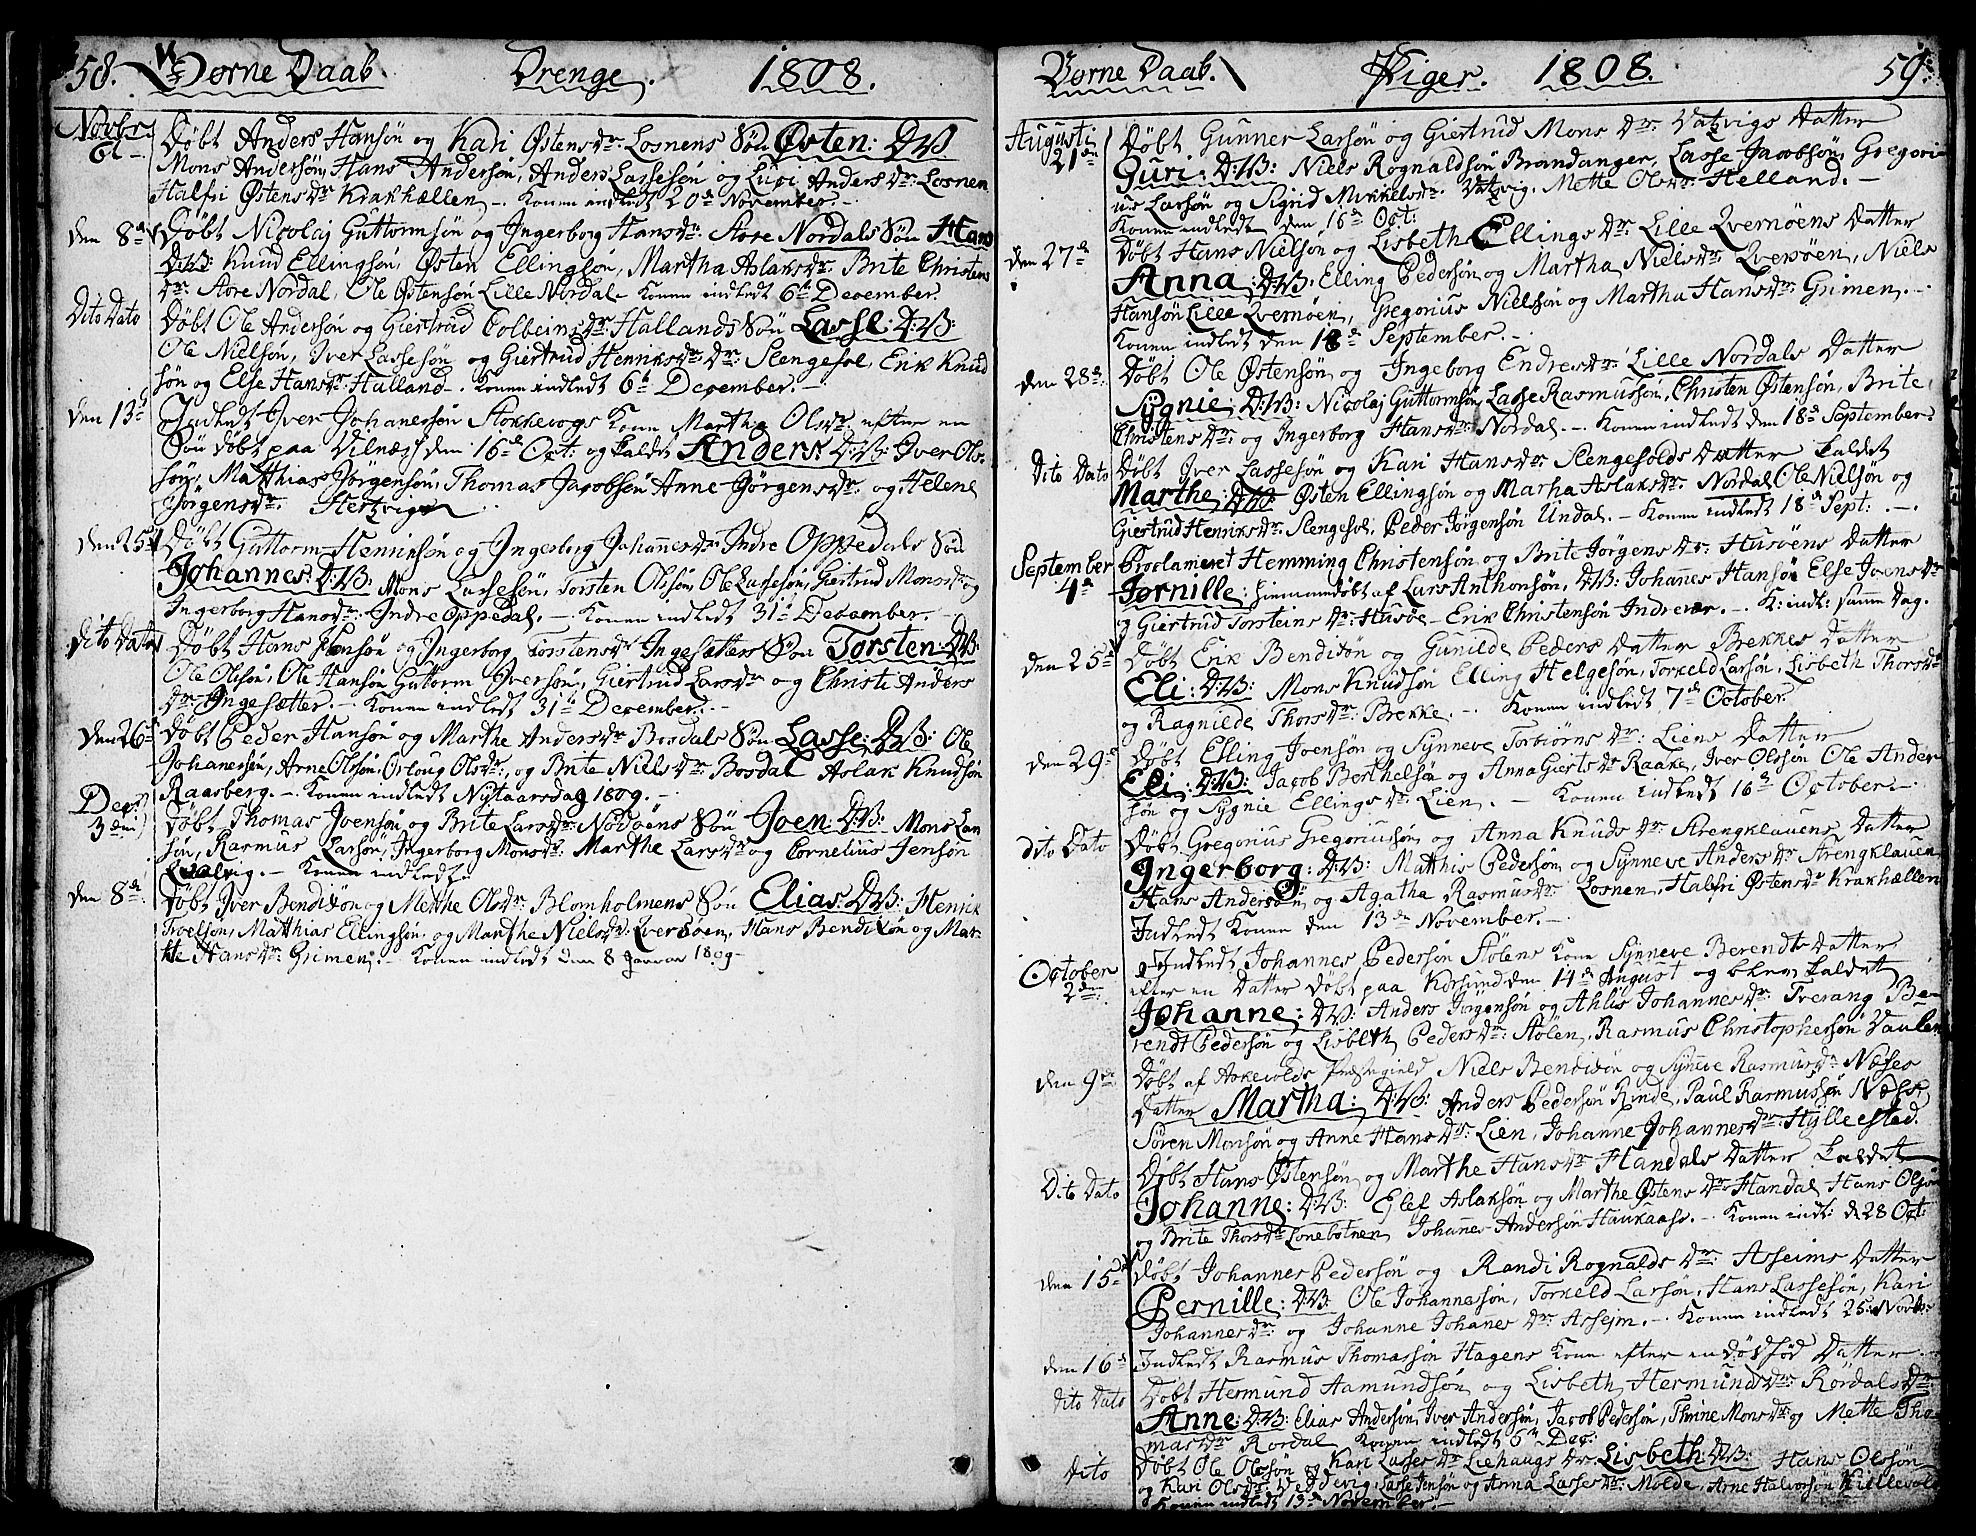 58. Børne Daab. Drenge. 1808.
Novbr. 6t — Døbt Anders Hansøn og Kari Østensdr: Losnens Søn Østen: D:W:
Mons Andersøn, Hans Andersøn, Anders Lassesøn og Guri Andersdr: Losnen
Halfri Østensdr: Krakhællen — Konen indledt 20de November. —
den 8de Døbt Nicolaj Guttormsøn og Ingerborg Hansdr: Store Nordals Søn Hans
D:W: Knud Ellingsøn, Østen Ellingsøn, Martha Aslaksdr: Brite Christens
dr: Store Nordal, Ole Østensøn Lille Nordal — Konen indledt 6te December.
Dito Dato Døbt Ole Andersøn og Giertrud Colbeinsdr: Hallands Søn Lasse: D:W:
Ole Nielsøn, Iver Lassesøn og Giertrud Henriksdr: Slengesol, Erik Knud
søn og Else Hansdr: Halland — Konen indledt 6te December. —
den 13d Indledt Iver Johanessøn Stokkevogs Kone Martha Olsdr: efter en
Søn døbt paa Vilnæs den 16de Oct: og kaldet Anders: D:W: Iver Ols-
søn, Matthias Jørgensøn, Thomas Jacobsøn Anne Gørgensdr: og Helene
Jørgensdr: Hertzvigen
den 25d Døbt Guttorm Henriksøn og Ingerborg Johannesdr: Indre Oppedals Søn
Johannes: D:W: Mons Lassesøn, Torsten Olssøn, Ole Lassesøn, Giertrud Monsdr: og
Ingerborg Hansdr: Indre Oppedal. — Konen indledt 31te December. —
Dito Dato Døbt Hans Hansøn og Ingerborg Torstensdr: Ingesetters Søn Torsten: D:W:
Ole Olssøn, Ole Hansøn Guttorm Iversøn, Giertrud Larsdr: og Christi Anders
dr: Ingesætter. — Konen indledt 31te December. —
den 26d Døbt Peder Hansøn og Marthe Andersdr: Bosdals Søn Lasse: D:W: Ole
Johanessøn, Arne Olssøn, Orloug Olsdr: og Brite Nielsdr: Bosdal Aslak Knudsøn
Raasberg. — Konen indledt Nytaarsdag 1809. —
Decr: 3die Døbt Thomas Joensøn og Brite Larsdr: Nødøens Søn Joen: D:W: Mons Lar
søn, Rasmus Larsøn, Ingerborg Monsdr: Marthe Larsdr: og Cornelius Jensøn
— Konen indledt
den 8de Døbt Iver Bendixøn og Mette Olsdr: Blomholmens Søn Elias: D:W: Henrik
Troelsøn, Matthias Ellingsøn og Marthe Nielsdr: Qversøen, Hans Bendixøn og Mar-
the Hansdr: Grimen. — Konen indledt den 8 Januar 1809 —
Børne Daab. Piger. 1808. 59.
Augusti 21de Døbt Gunner Larsøn og Giertrud Monsdr: Vatzvigs Datter
Guri: D:W: Niels Rognaldsøn Brandanger, Lasse Jacobsøn, Gregori
us Larsøn og Sigrid Mikkelsdr: Vatzvig. Mette Olsdr: Helland. —
Konen indledt den 16de Oct:
den 27de Døbt Hans Nielsøn og Lisbeth Ellingsdr: Lille Qvernøens Datter
Anna: D:W: Elling Pedersøn og Martha Nielsdr: Qversøen, Niels
Hansøn Lille Qvernøen, Gregorius Nielsøn og Martha Hansdr: Grimen. —
Konen indledt den 18de September. —
den 28de Døbt Ole Østensøn og Ingeborg Endresdr: Lille Nordals Datter
Sygnie: D:W: Nicolaj Guttormsøn, Lasse Rasmussøn, Christen Østensøn, Brite
Christensdr: og Ingerborg Hansdr: Nordal. — Konen indledt den 18de September
Dito Dato Døbt Iver Lassesøn og Kari Hansdr: Slengesolds Datter kaldet
Marthe: D:W: Østen Ellingsøn og Marha Aslaksdr: Nordal Ole Nielsøn og
Giertrud Henriksdr: Slengesol, Peder Jørgensøn Undal. — Konen indledt 18de Sept: —
September 4de Proclameret Hemming Christensøn og Brite Jørgensdr: Husøens Datter
Jørnille: hiemmedøbt af Lars Anthonsøn, D:W: Johannes Hansøn Else Joensdr:
og Giertrud Torsteinsdr: Husøe — Erik Christensøn Indrevær. — K: indl: samme Dag.
den 25de Døbt Erik Bendixøn og Gunilde Peders Datter Brekkes Datter
Eli: D:W: Mons Knudsøn Elling Helgesøn, Torkeld Larsøn, Lisbeth Thorsdr:
og Ragnilde Thorsdr: Brekke. — Konen indledt 7de October.
den 29de Døbt Elling Joensøn og Synneve Torbiørnsdr: Liens Datter
Eli: D:W: Jacob Berthelsøn og Anna Giertsdr: Raake, Iver Olssøn Ole Ander
søn og Sygnie Ellingsdr: Lien. — Konen indledt 16de October. —
Dito Dato Døbt Gregorius Gregoriussøn og Anna Knudsdr: Strengklauens Datter
Ingerborg: D:W: Matthis Pedersøn og Synneve Andersdr: Strengklauen
Hans Andersøn, og Agatha Rasmusdr: Losnen, Halfri Østensdr: Krakhællen
Indledt Konen den 13de November. —
October 2den Indledt Johannes Pedersøn Stølens Kone Synneve Berendts Datter
efter en Datter døbt paa Korsund den 14de August og blev kaldet
Johanne: D:W: Anders Jørgensøn og Ahlis Johannesdr: Tresang Be-
rendt Pedersøn og Lisbeth Pedersdr: Stølen, Rasmus Christophersøn Vaulen
den 9de Døbt af Askevolds Præstegield Niels Bendixøn og Synneve Rasmusdr: Næses
Datter Martha: D:W: Anders Pedersøn Rinde, Paul Rasmussøn Næse,
Søren Monsøn og Anne Hansdr: Lien, Johanne Johannesdr: Hyllestad.
Dito Dato Døbt Hans Østensøn og Marthe Hansdr: Handals Datter kaldet
Johanne: D:W: Elef Aslaksøn og Marthe Østensdr: Handal Hans Olsøn
og Brite Thorsdr: Lonebotnen Johannes Andersøn Haukaas. — Konen indl: d. 28 Oct:
den 15de Døbt Johannes Pedersøn og Randi Rognaldsdr: Asseims Datter
Pernille: D:W: Ole Johannessøn, Torkeld Larsøn, Hans Lassesøn, Kari
Johannesdr: og Johanne Johanesdr: Assejm. — Konen indledt 25: Novbr:
den 16de Indledt Rasmus Thomassøn Hagens Kone efter en dødfød Datter.
Dito Dato Døbt Hermund Aamundsøn og Lisbeth Hermundsdr: Rørdals Dr:
Anne: D:W: Elias Andersøn, Iver Andersøn, Jacob Pedersøn, Thrine Monsdr: og Mette Tho
masdr: Rørdal Konen indledt 6te Dec:
Dito Døbt Ole Olssøn og Kari Lassesdr: Liehaugs Dr: Lisbeth: D:W: Hans Olssøn
og Kari Olsdr: Lasse Jensøn og Anna Lassesdr: Molde, Arne Halvorsøn Killevold
Konen indledt 13de November —